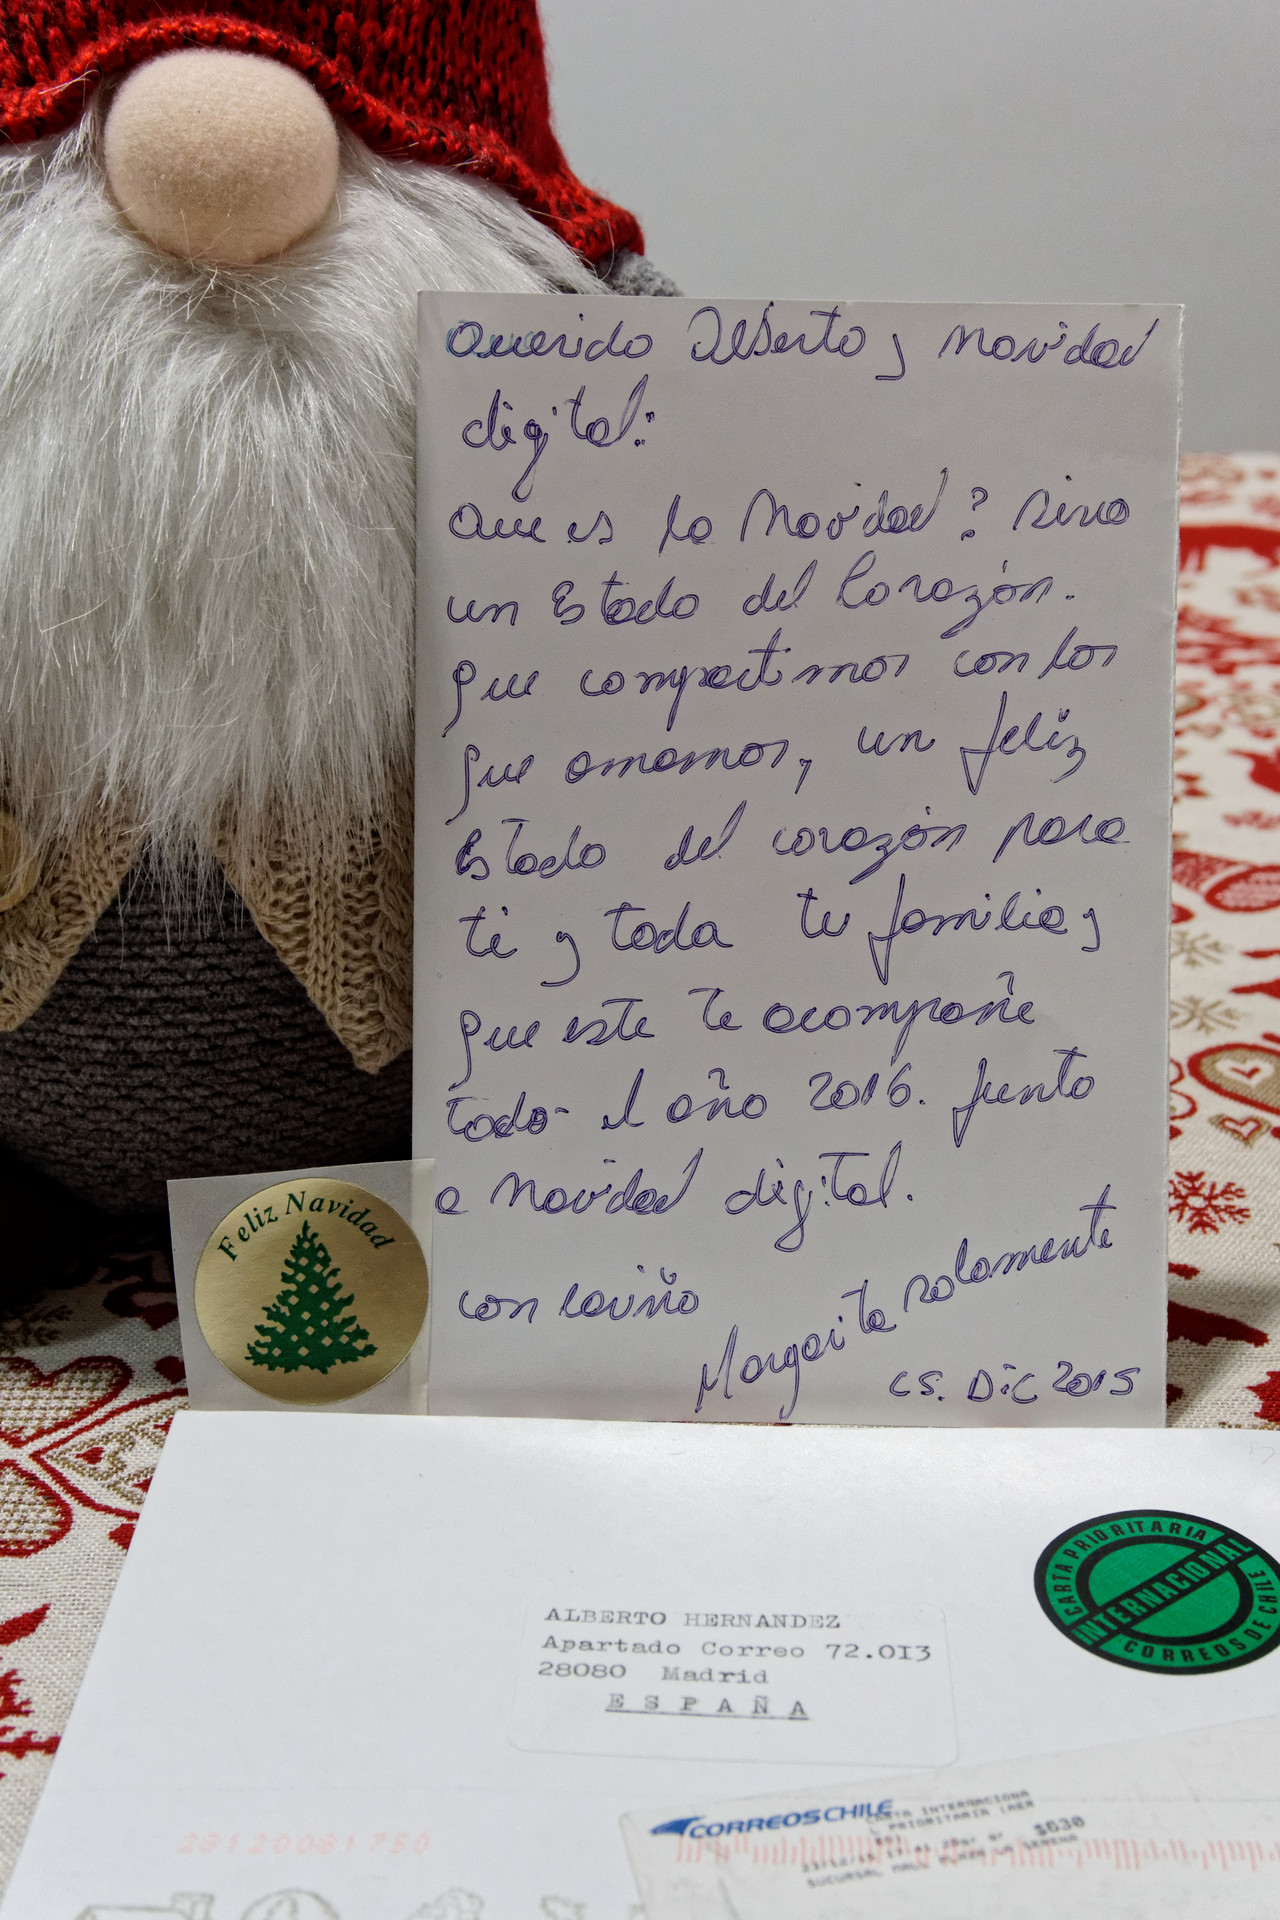 Querido Alberto y Navidad
digital:
Que es la Navidad? Sino
un Estado del Corazón.
que compartimos con los
que amamos, un feliz
Estado del corazón para
ti y toda tu familia y
que este te acompañe
todo el año 2016. Junto
a Navidad digital.
con cariño
Margarita solamente
CS. DiC 2015
Feliz Navidad
CARTA PRIORITARIA
INTERNACIONAL
CORREOS DE CHILE
ALBERTO HERNANDEZ
Apartado Correo 72.0I3
28080 Madrid
ESPAÑA
CORREOSCHILE
CARTA INTERNACIONA
PRIORITARIA (AER
$630
SUCURSAL MALL PLAZA LA SERENA